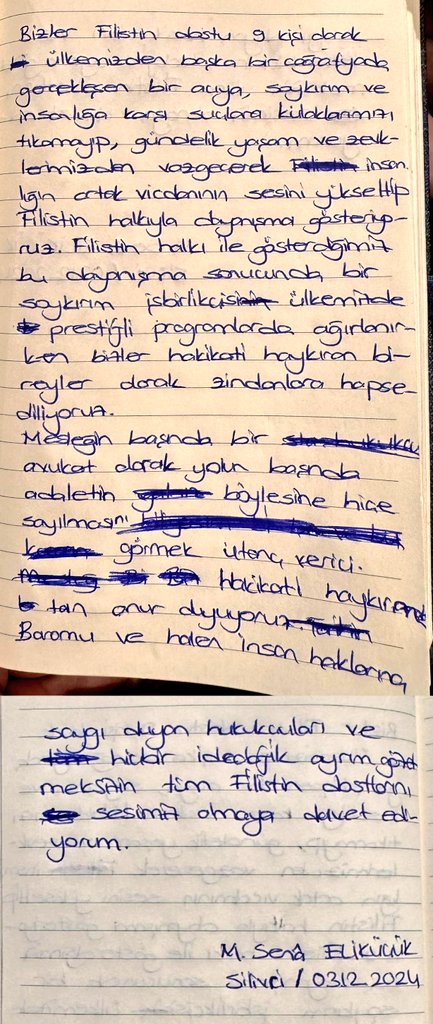 Bizler Filistin dostu 9 kişi olarak
ülkemizden başka bir coğrafyada
gerçekleşen bir acıya, soykırım ve
insanlığa karşı suçlara kulaklarımızı
tıkamayıp, gündelik yaşam ve zevk-
lerimizden vazgeçerek insan
lığın ortak vicdanının sesini yükseltip
Filistin halkıyla dayanışma gösteriyo-
ruz. Filistin halkı ile gösterdiğimiz
bu dayanışma sonucunda bir
soykırım işbirlikçisi ülkemizde
prestijli programlarda ağırlanır-
ken bizler hakikati haykıran bi-
reyler olarak zindanlara hapse-
diliyoruz.
Mesleğin başında bir
avukat olarak yolun başında
adaletin böylesine hiçe
sayılmasını
görmek utanç verici.
Hakikati haykırmak
tan onur duyuyoruz.
Baromu ve halen insan haklarına
saygı duyan hukukçuları ve
hiçbir ideolojik ayrım gözet
meksizin tüm Filistin dostlarını
sesimiz olmaya davet edi-
yorum.
M. Senâ ELİKÜÇÜK
Silivri / 03.12.2024